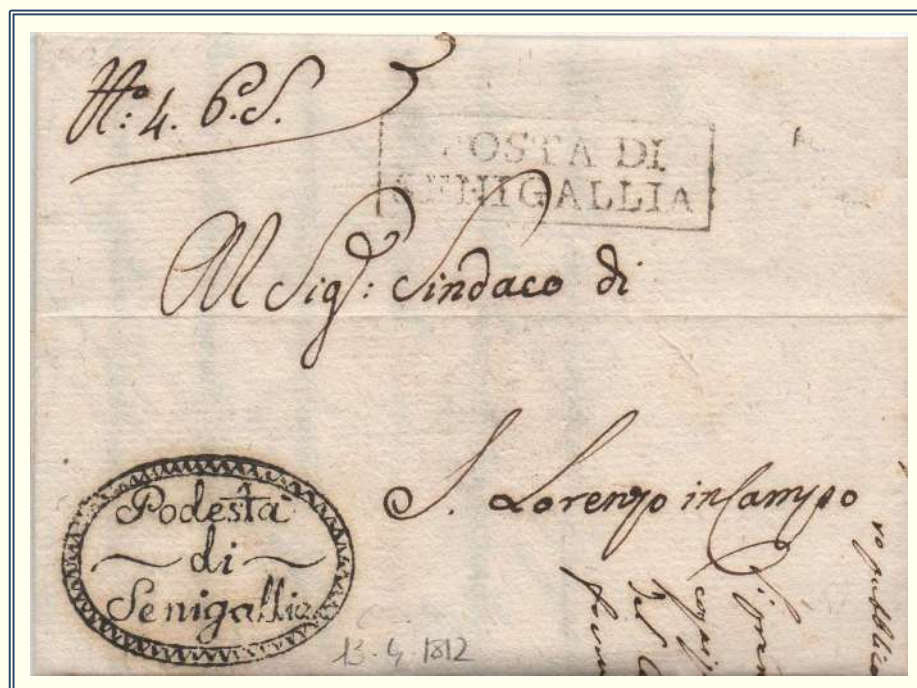 N.º 4. P. S.
POSTA DI
SENIGALLIA
Al Sig.: Sindaco di
S. Lorenzo in Campo
Podestà
di
Senigallia
13.4.1812
vo pubblico